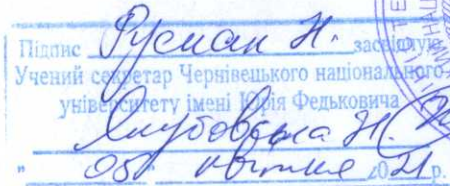 Підпис Руснак Н. засвідчую
Учений секретар Чернівецького національного
університету імені Юрія Федьковича
Якубовська Н.
" 05 " квітня 2021 р.